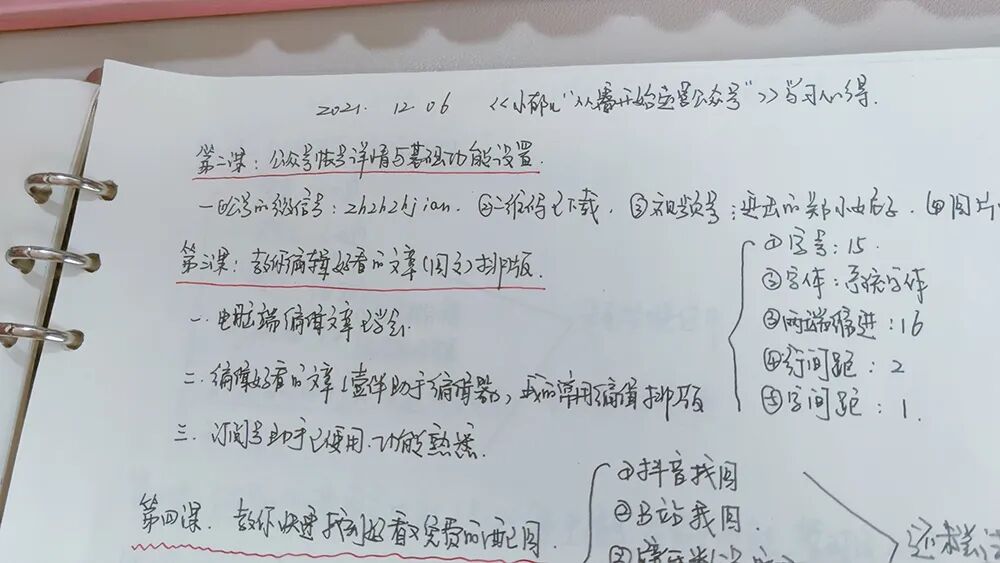 2021. 12.06 《小郁儿“从零开始运营公众号”》学习心得.
第二课:公众号帐号详情与基础功能设置.
一 ①公号的微信号:zhzhzhjian. ②二维码已下载. ③视频号:进击的郑小 ④图片
第三课:教你编辑好看的文章(图文)排版.
①字号:15.
②字体:系统字体
③两端缩进:16
④行间距:2
⑤字间距:1.
一.电脑端编辑文章已学会.
二.编辑好看的文章 助于编辑器,我的常用编辑排版
三.订阅号助手已使用.功能熟悉.
第四课.教你快速找到好看又免费的配图.
①抖音找图
②B站找图.